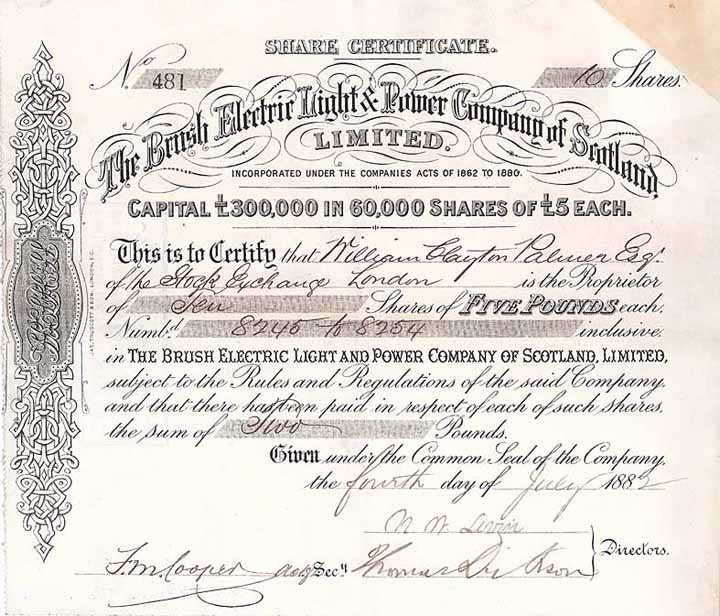 SHARE CERTIFICATE.
No 481 10 Shares.
The Brush Electric Light & Power Company of Scotland,
LIMITED.
INCORPORATED UNDER THE COMPANIES ACTS OF 1862 TO 1880.
CAPITAL £300,000 IN 60,000 SHARES OF £5 EACH.
This is to Certify that William Clayton Palmer Esqr.
of the Stock Exchange London is the Proprietor
of Ten Shares of FIVE POUNDS each,
Numbd 8245 to 8254 inclusive,
in THE BRUSH ELECTRIC LIGHT AND POWER COMPANY OF SCOTLAND, LIMITED,
subject to the Rules and Regulations of the said Company,
and that there has been paid in respect of each of such shares,
the sum of Two Pounds.
Given under the Common Seal of the Company,
the fourth day of July 1882
Directors.
F.M. Cooper actg Secy Thomas Dickson